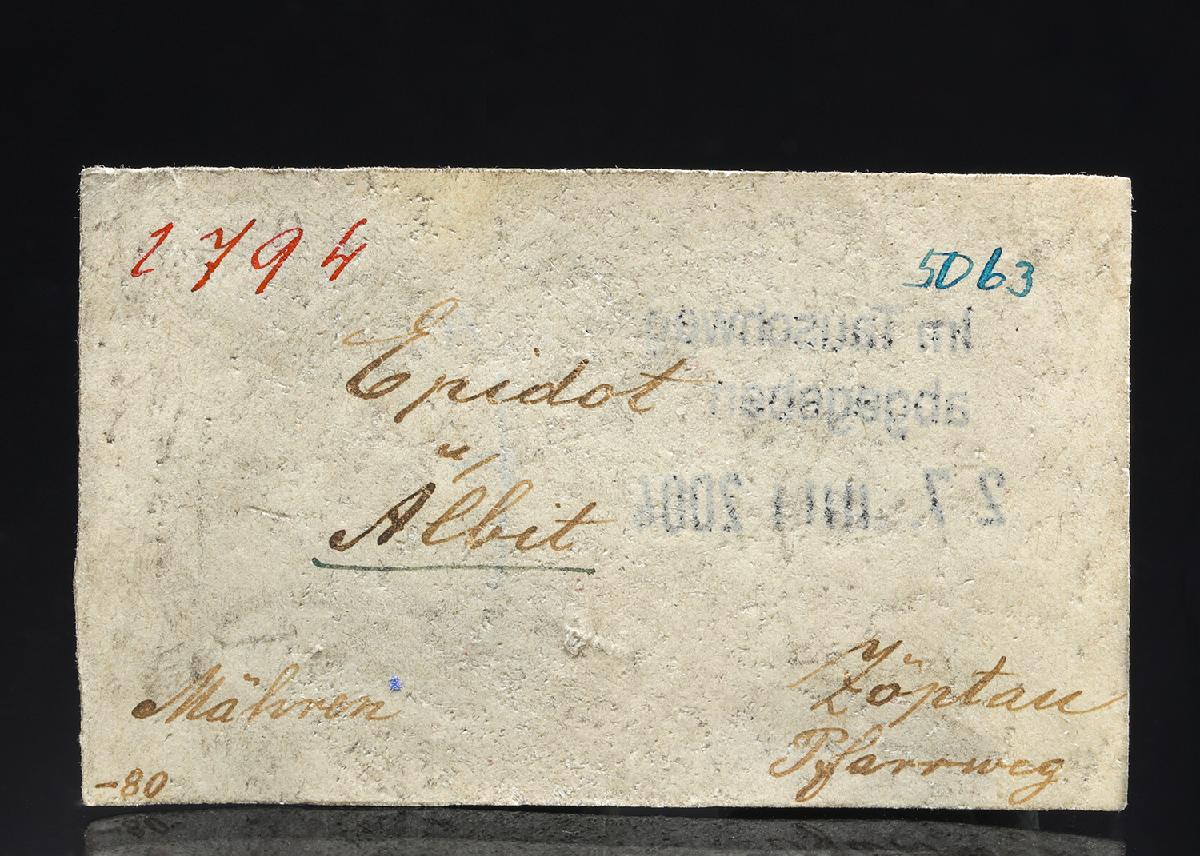 2794
5063
Im Tauschweg
abgegeben
27. JULI 2004
Epidot
u,
Albit
Mähren
Zöptau
Pfarrweg
-80